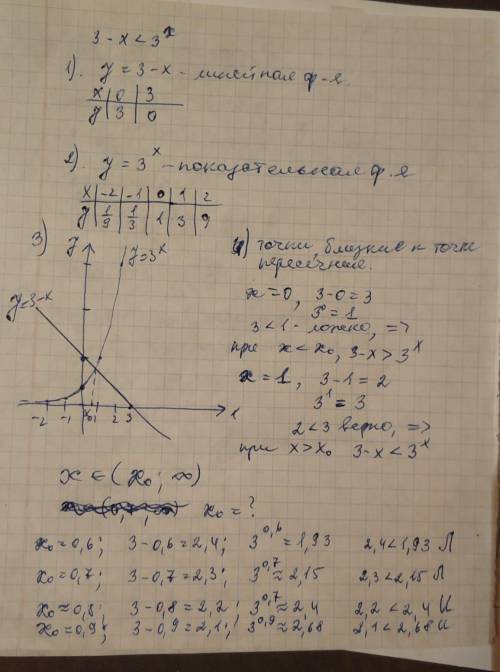 3-x<3^x
1). y=3-x - линейная ф-я.
x | 0 | 3
y | 3 | 0
2). y=3^x - показательная ф.я
x | -2 | -1 | 0 | 1 | 2
y | 1/9 | 1/3 | 1 | 3 | 9
3)
y
y=3^x
y=3-x
-2 -1 x₀ 1 2 3 x
4) точки, близкие к точке
пересечения.
x=0, 3-0=3
3⁰=1
3<1 - ложно, =>
при x<x₀, 3-x>3^x
x=1, 3-1=2
3¹=3
2<3 верно, =>
при x>x₀ 3-x<3^x
x∈(x₀; ∞)
x₀=?
x₀=0,6; 3-0,6=2,4; 3^0,6=1,93 2,4<1,93 Л
x₀=0,7; 3-0,7=2,3; 3^0,7≈2,15 2,3<2,15 Л
x₀≈0,8; 3-0,8=2,2; 3^0,7≈2,4 2,2<2,4 И
x₀=0,9; 3-0,9=2,1; 3^0,9≈2,68 2,1<2,68 И